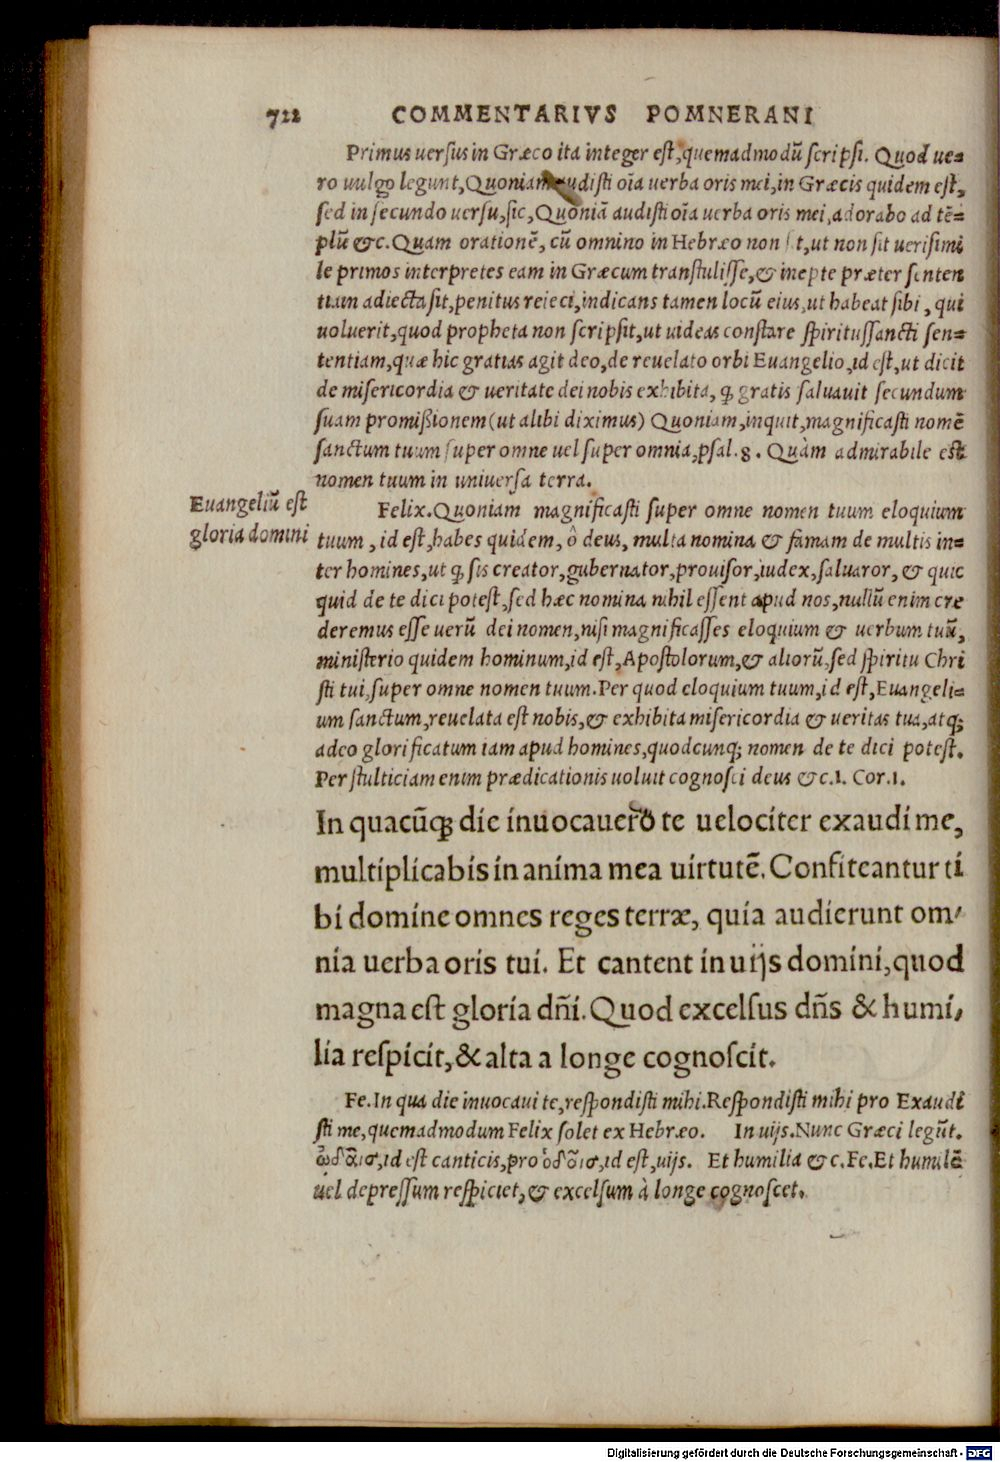 722 COMMENTARIVS POMNERANI
Primus uersus in Græco ita integer est, quemadmodū scripsi. Quod ue=
ro uulgo legunt, Quoniam audisti oīa uerba oris mei, in Græcis quidem est,
sed in secundo uersu, sic, Quoniā audisti oīa uerba oris mei, adorabo ad tē=
plū &c. Quam orationē, cū omnino in Hebræo non sit, ut non sit uerisimi
le primos interpretes eam in Græcum transtulisse, & inepte præter senten
tiam adiecta sit, penitus reieci, indicans tamen locū eius, ut habeat sibi, qui
uoluerit, quod propheta non scripsit, ut uideas constare spiritussancti sen=
tentiam, quæ hic gratias agit deo, de reuelato orbi Euangelio, id est, ut dicit
de misericordia & ueritate dei nobis exhibita, ꝙ gratis saluauit secundum
suam promißionem (ut alibi diximus) Quoniam, inquit, magnificasti nomē
sanctum tuum super omne uel super omnia, psal. 8. Quàm admirabile est
nomen tuum in uniuersa terra.
Euangeliū est
gloria domini
Felix. Quoniam magnificasti super omne nomen tuum eloquium
tuum, id est, habes quidem, ô deus, multa nomina & famam de multis in=
ter homines, ut ꝙ sis creator, gubernator, prouisor, iudex, saluaror, & quic
quid de te dici potest, sed hæc nomina nihil essent apud nos, nullū enim cre
deremus esse uerū dei nomen, nisi magnificasses eloquium & uerbum tuū,
ministerio quidem hominum, id est, Apostolorum, & aliorū, sed spiritu Chri
sti tui, super omne nomen tuum. Per quod eloquium tuum, id est, Euangeli=
um sanctum, reuelata est nobis, & exhibita misericordia & ueritas tua, atq;
adeo glorificatum iam apud homines, quodcunq; nomen de te dici potest.
Per stulticiam enim prædicationis uoluit cognosci deus &c. 1. Cor. 1.
In quacūq; die inuocauero te uelociter exaudi me,
multiplicabis in anima mea uirtutē. Confiteantur ti
bi domine omnes reges terræ, quia audierunt om/
nia uerba oris tui. Et cantent in uijs domini, quod
magna est gloria dñi. Quod excelsus dñs & humi/
lia respicit, & alta a longe cognoscit.
Fe. In qua die inuocaui te, respondisti mihi. Respondisti mihi pro Exaudi
sti me, quemadmodum Felix solet ex Hebræo. In uijs. Nunc Græci legūt.
ᾠδαῖς, id est canticis, pro ὁδοῖς, id est, uijs. Et humilia &c. Fe. Et humilē
uel depressum respiciet, & excelsum à longe cognoscet.
Digitalisierung gefördert durch die Deutsche Forschungsgemeinschaft - DFG